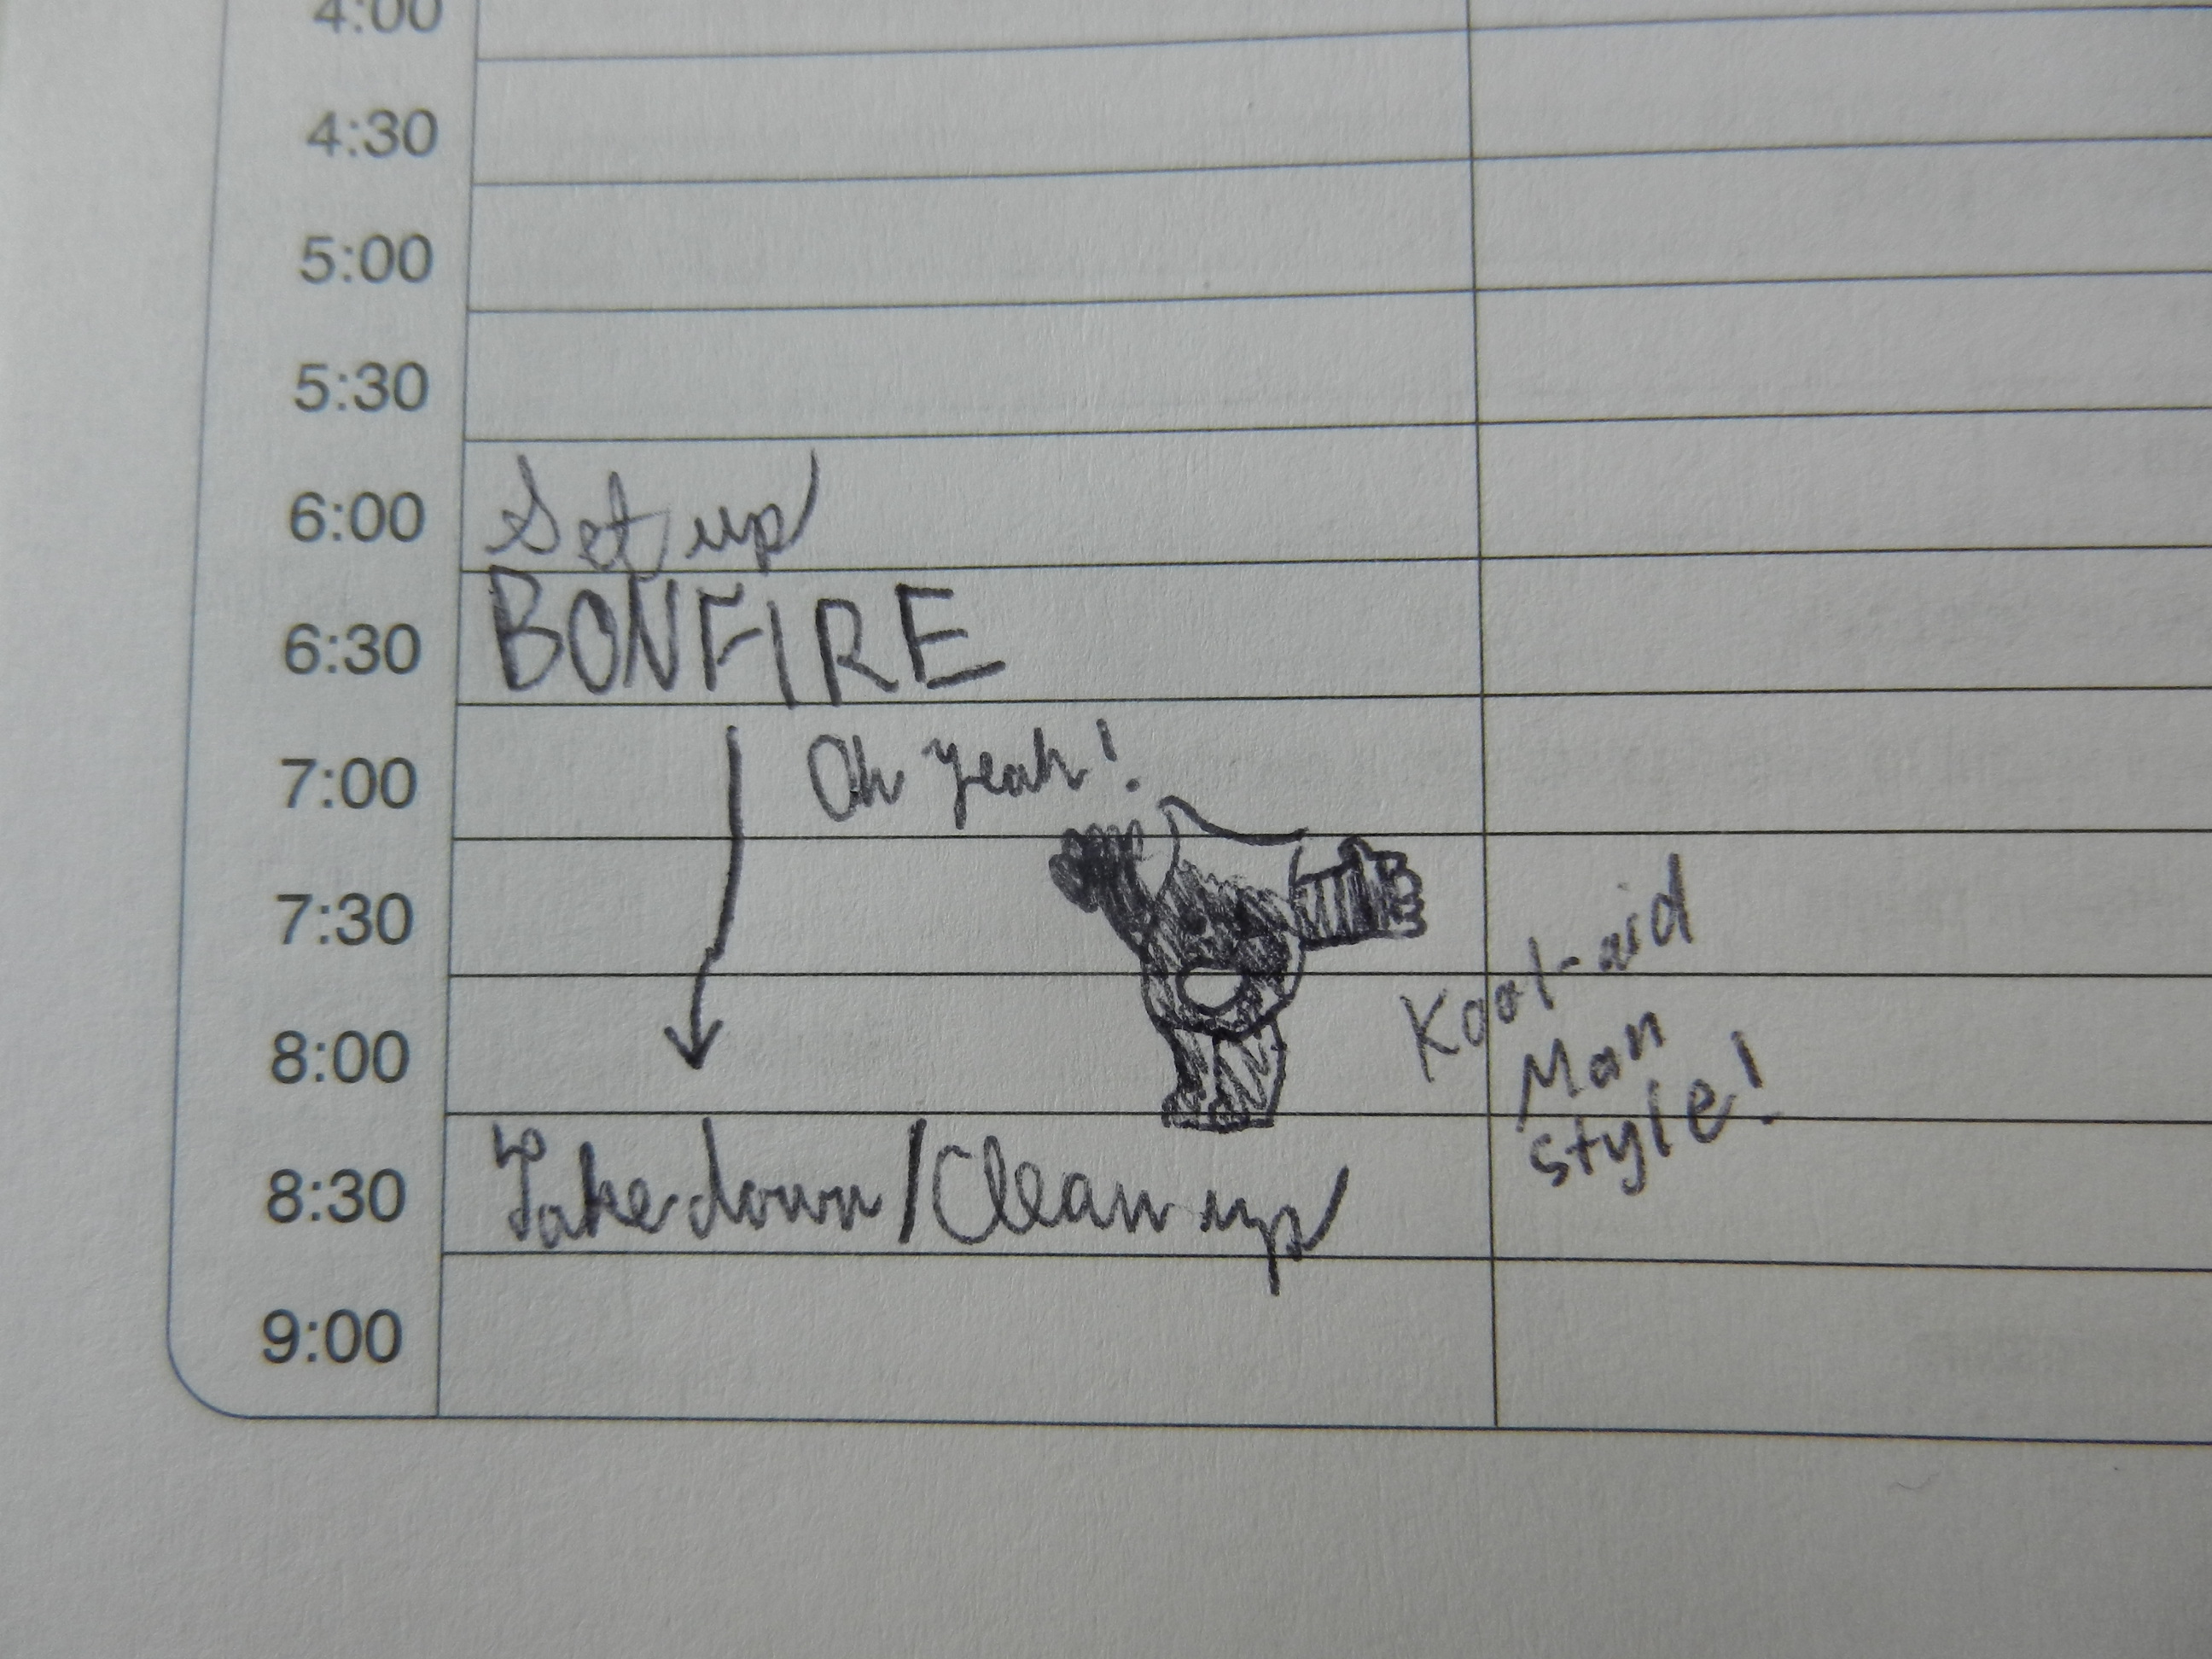 4:00
4:30
5:00
5:30
6:00 Set up
6:30 BONFIRE
7:00 Oh yeah!
7:30
Kool-aid
8:00
Man
style!
8:30 Takedown/Clean up
9:00